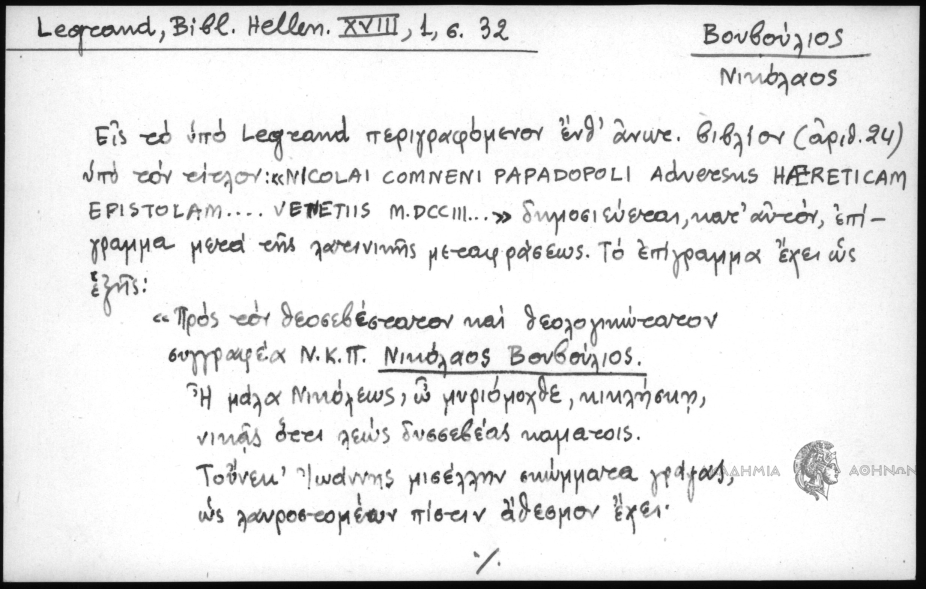 Legrand, Bibl. Hellen. XVIII, 1, σ. 32
Βουβούλιος
Νικόλαος
Εἰς τό ὑπό Legrand περιγραφόμενον ἔνθ' ἄνωτ. βιβλίον (ἀριθ. 24)
ὑπό τόν τίτλον: «NICOLAI COMNENI PAPADOPOLI Adversus HÆRETICAM
EPISTOLAM.... VENETIIS M.DCCIII...» δημοσιεύεται, κατ' αὐτόν, ἐπί-
γραμμα μετά τῆς λατινικῆς μεταφράσεως. Τό ἐπίγραμμα ἔχει ὡς
ἑξῆς:
«Πρός τόν θεοσεβέστατον καί θεολογικώτατον
συγγραφέα Ν.Κ.Π. Νικόλαος Βουβούλιος.
Ἦ μάλα Νικόλεως, ὦ μυριόμοχθε, κικλήσκῃ,
νικᾷς ὅττι λεώς δυσσεβέας καμάτοις.
Τοὔνεκ' Ἰωάννης μισέλλην σκώμματα γράψας,
ὡς λαυροστομέων πίστιν ἄθεσμον ἔχει·
ΑΔΗΜΙΑ ΑΘΗΝΩΝ
·/.